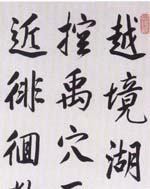 越境湖
控禹穴
近徘徊